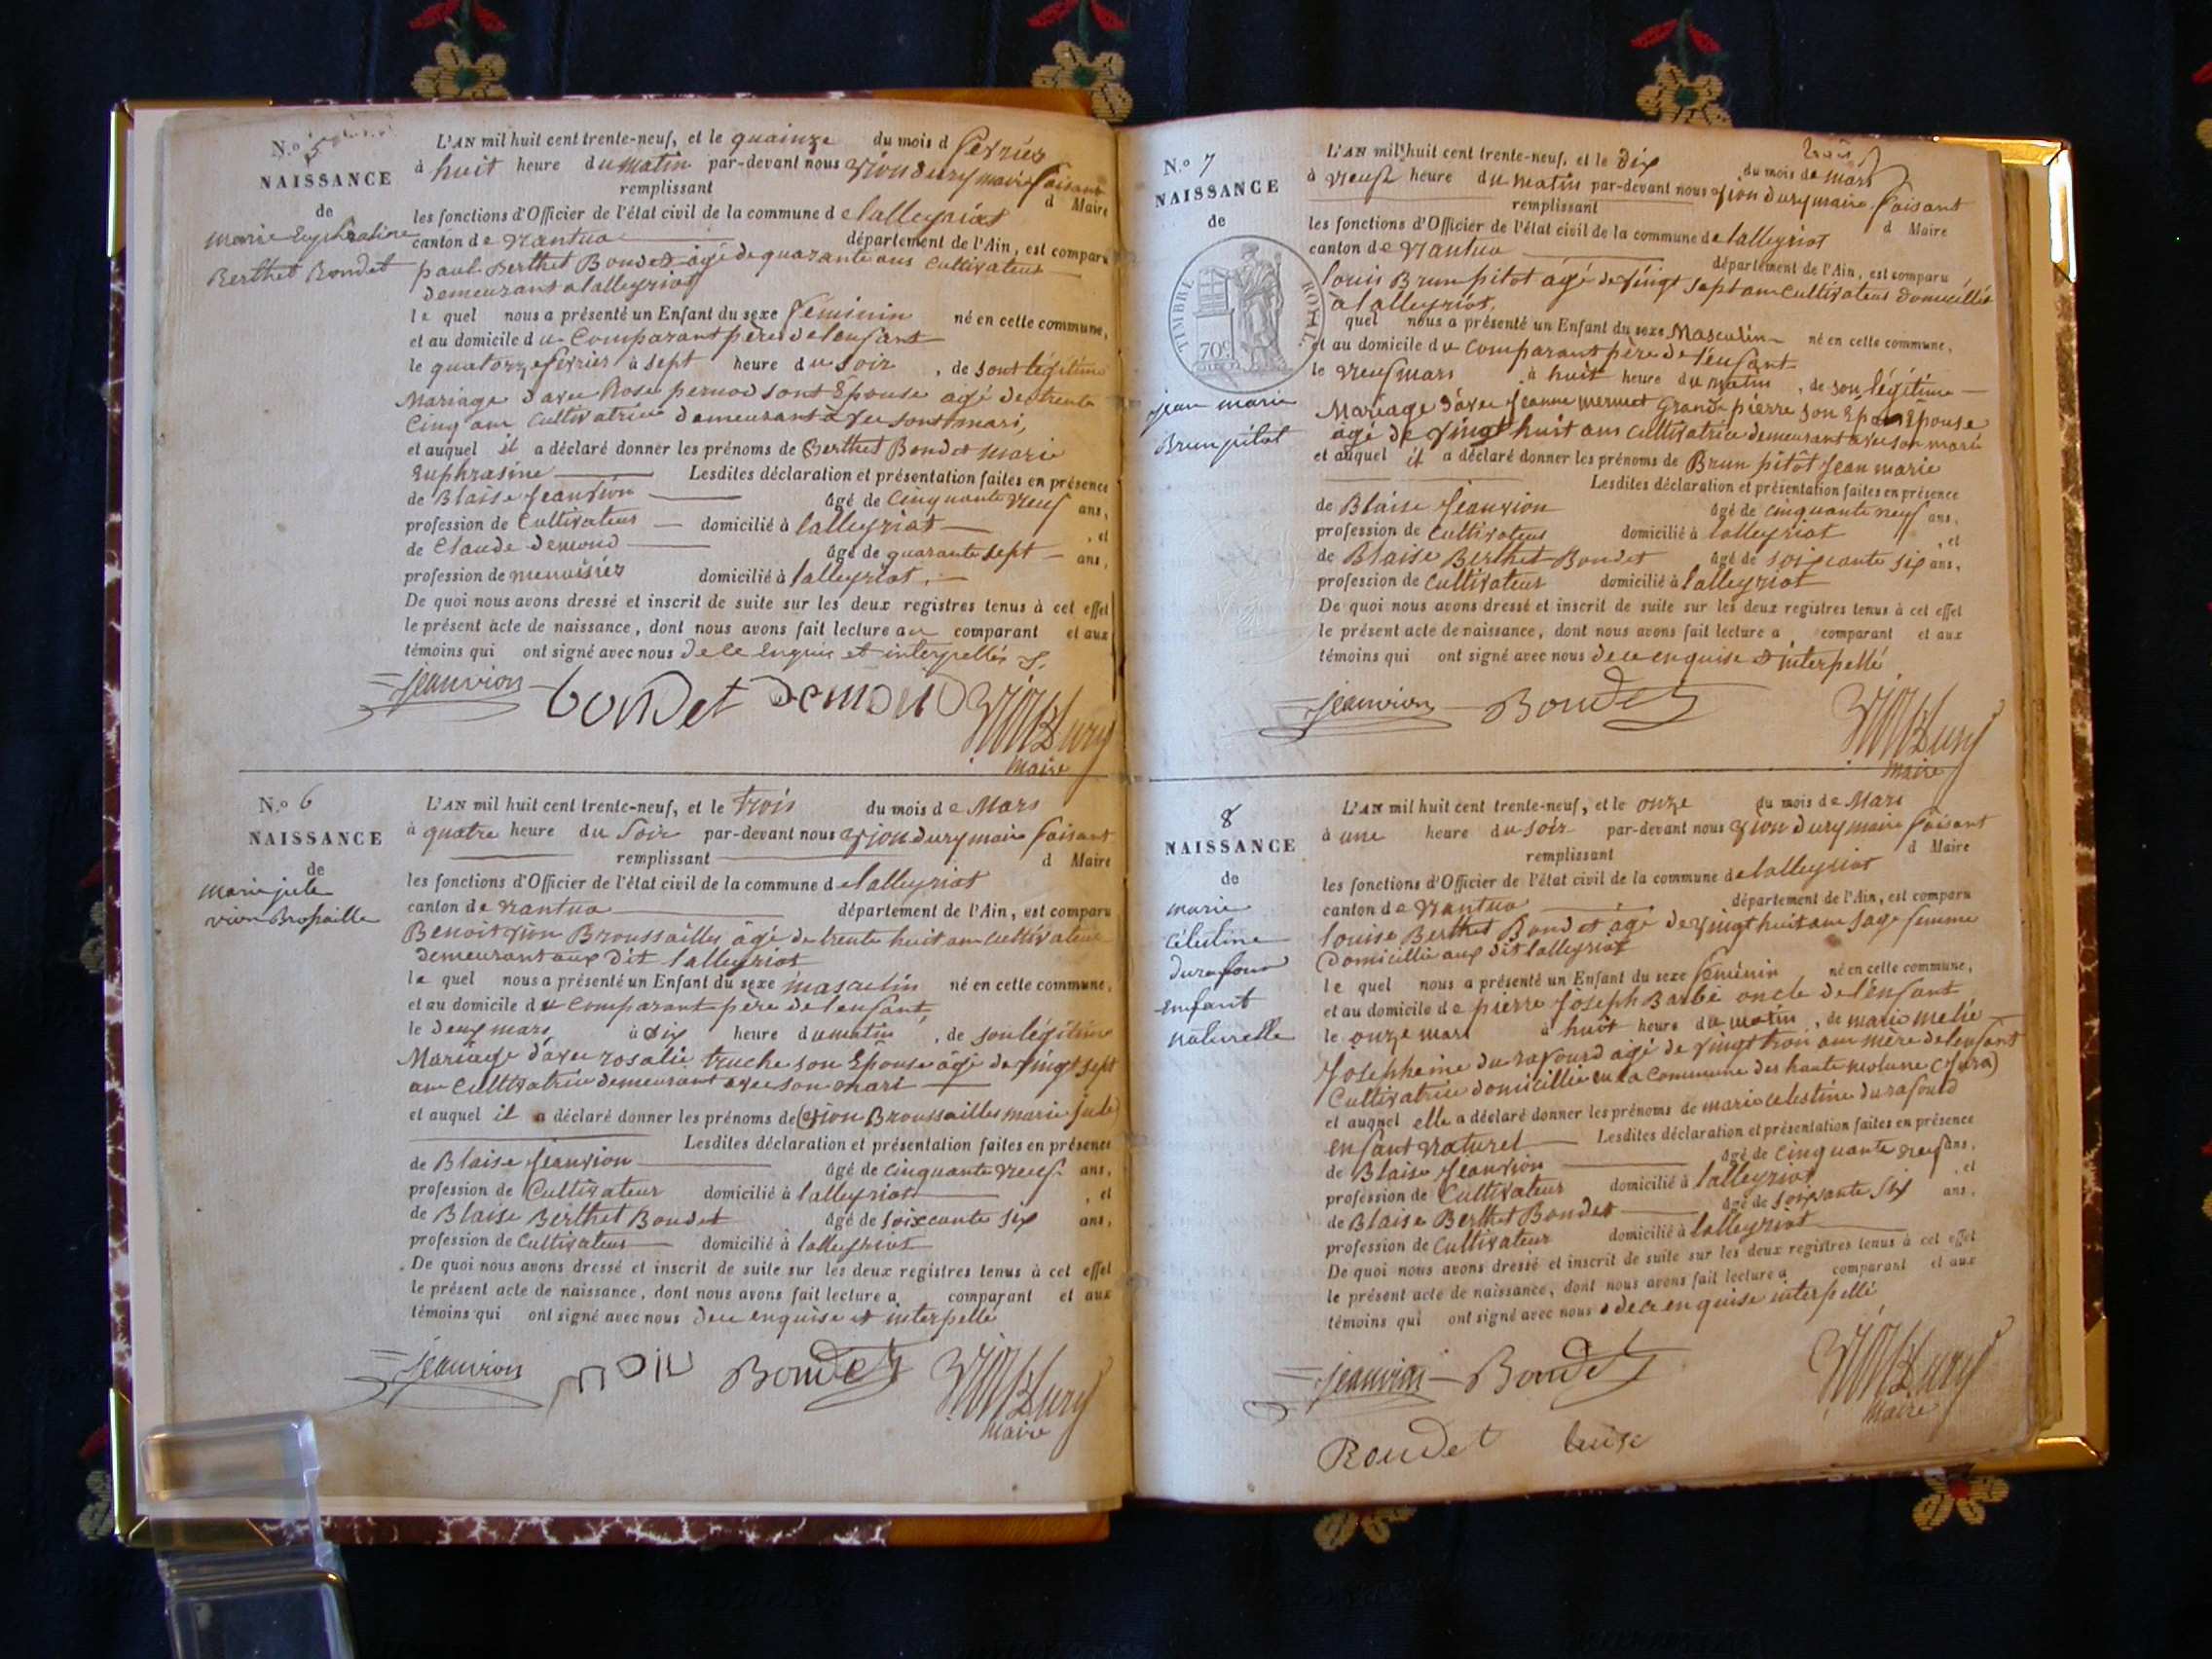 N.o 5
NAISSANCE
de
marie Euphrasine
Berthet Bondet
L'AN mil huit cent trente-neuf, et le quainze du mois d fevrier
à huit heure du matin par-devant nous Vion dury maire faisant
remplissant d Maire
les fonctions d'Officier de l'état civil de la commune de lalleyriat
canton de Nantua département de l'Ain, est comparu
paul Berthet Bondet agé de quarante ans Cultivateur
demeurant a lalleyriat
le quel nous a présenté un Enfant du sexe feminin né en cette commune,
et au domicile du Comparant père de lenfant
le quatorze fevrier à sept heure du soir, de sont légitime
Mariage d'avec Rose pernod sont Epouse agé de trente
Cinq ans Cultivatrice demeurant avec sont mari,
et auquel il a déclaré donner les prénoms de Berthet Bondet Marie
Euphrasine Lesdites déclaration et présentation faites en présence
de Blaise Jeanvion âgé de Cinquante neuf ans,
profession de Cultivateur domicilié à lalleyriat, et
de Claude demond âgé de quarante sept ans,
profession de menuisier domicilié à lalleyriat.
De quoi nous avons dressé et inscrit de suite sur les deux registres tenus à cet effet
le présent acte de naissance, dont nous avons fait lecture au comparant et aux
témoins qui ont signé avec nous de ce enquis et interpellés
jeanvion bondet Demond Vion Dury
Maire
N.o 6
NAISSANCE
de
Marie jule
vion Brossaille
L'AN mil huit cent trente-neuf, et le trois du mois de Mars
à quatre heure du Soir par-devant nous Vion dury maire faisant
remplissant d Maire
les fonctions d'Officier de l'état civil de la commune de lalleyriat
canton de Nantua département de l'Ain, est comparu
Benoit Vion Broussailles âgé de trente huit ans cultivateur
demeurant aux dit lalleyriat
le quel nous a présenté un Enfant du sexe masculin né en cette commune,
et au domicile du comparant père de lenfant
le deux mars à dix heure du matin, de son légitime
Mariage d'avec rosalie truche son Epouse âgé de Vingt sept
ans Cultivatrice demeurant avec son mari
et auquel il a déclaré donner les prénoms de (Vion Broussailles marie jule)
Lesdites déclaration et présentation faites en présence
de Blaise Jeanvion âgé de cinquante neuf ans,
profession de Cultivateur domicilié à lalleyriat, et
de Blaise Berthet Bondet âgé de soixcante six ans,
profession de Cultivateur domicilié à lalleyriat
De quoi nous avons dressé et inscrit de suite sur les deux registres tenus à cet effet
le présent acte de naissance, dont nous avons fait lecture a comparant et aux
témoins qui ont signé avec nous de ce enquise et interpellé
jeanvion Bondet Vion Dury
Maire
N.o 7
NAISSANCE
de
TIMBRE ROYAL
70c
jean marie
Brun pitot
trois
L'AN mil huit cent trente-neuf, et le Dix du mois de mars
à Neuf heure du matin par-devant nous Vion dury maire faisant
remplissant d Maire
les fonctions d'Officier de l'état civil de la commune de lalleyriat
canton de Nantua département de l'Ain, est comparu
louis Brun pitot agé de Vingt sept ans Cultivateur domicillié
à lalleyriat,
quel nous a présenté un Enfant du sexe Masculin né en cette commune,
et au domicile du comparant père de l'enfant
le Neuf mars à huit heure du matin, de son légitime
Mariage d'avec jeanne mermet Grand pierre son Epouse
agé de Vingt huit ans cultivatrice demeurant avec son mari
et auquel il a déclaré donner les prénoms de Brun pitôt Jean marie
Lesdites déclaration et présentation faites en présence
de Blaise Jeanvion âgé de cinquante neuf ans,
profession de Cultivateur domicilié à lalleyriat, et
de Blaise Berthet Bondet âgé de soixcante six ans,
profession de Cultivateur domicilié à lalleyriat
De quoi nous avons dressé et inscrit de suite sur les deux registres tenus à cet effet
le présent acte de naissance, dont nous avons fait lecture a comparant et aux
témoins qui ont signé avec nous de ce enquise & interpellé
jeanvion Bondet Vion Dury
Maire
8
NAISSANCE
de
marie
Célestine
durafour
enfant
naturelle
L'AN mil huit cent trente-neuf, et le onze du mois de Mars
à une heure du soir par-devant nous Vion dury maire faisant
remplissant d Maire
les fonctions d'Officier de l'état civil de la commune de lalleyriat
canton de Nantua département de l'Ain, est comparu
louise Berthet Bondet agé de Vingt huit ans sage femme
domicillié aux dit lalleyriat
le quel nous a présenté un Enfant du sexe feminin né en cette commune,
et au domicile de pierre Joseph Barbe oncle de l'enfant
le onze mars à huit heure du matin, de marie melie
Josephine durafourd agé de vingt trois ans mère de lenfant
Cultivatrice domicillié en la Commune des haute molune (Jura)
et auquel elle a déclaré donner les prénoms de marie celestine durafourd
enfant Naturel Lesdites déclaration et présentation faites en présence
de Blaise Jeanvion âgé de Cinquante neuf ans,
profession de Cultivateur domicilié à lalleyriat, et
de Blaise Berthet Bondet âgé de soixante six ans,
profession de Cultivateur domicilié à lalleyriat
De quoi nous avons dressé et inscrit de suite sur les deux registres tenus à cet effet
le présent acte de naissance, dont nous avons fait lecture a comparant et aux
témoins qui ont signé avec nous de ce enquise interpellé
jeanvion Bondet Vion Dury
Maire
Bondet luise